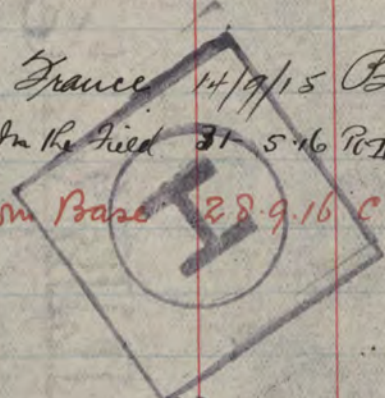 France 14/9/15 B
In the Field 31-5-16
om Base 28.9.16 C
H